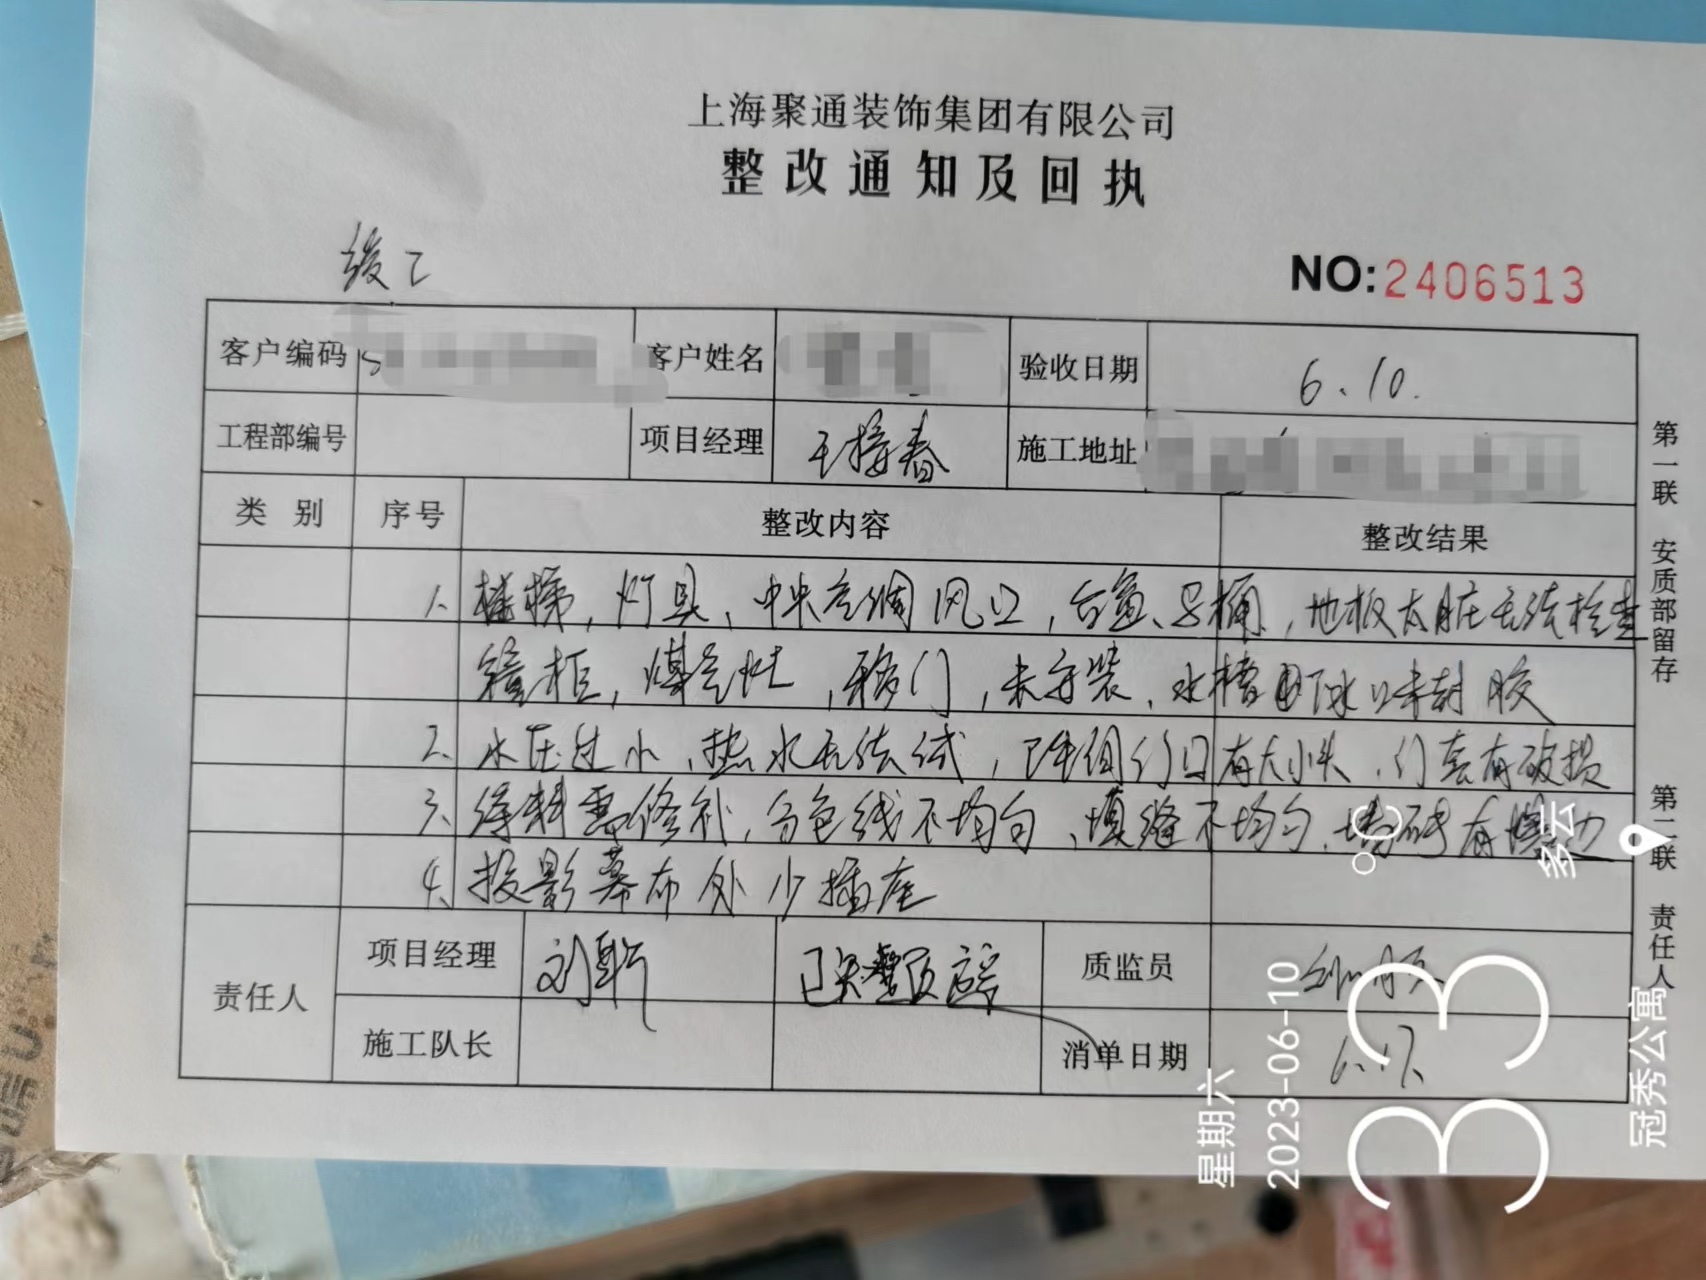 上海聚通装饰集团有限公司
整改通知及回执
竣工
NO:2406513
客户编码 客户姓名 验收日期 6.10.
工程部编号 项目经理 王接春 施工地址
类别 序号 整改内容 整改结果
1. 楼梯,灯具、中央空调风口,台盆、马桶,地板太脏无法检查
橱柜,煤气灶,移门,未安装、水槽下水口未封胶
2、水压过小、热水无法试,卫生间门口有大小头、门套有破损
3、涂料需修补,分色线不均匀、填缝不均匀、墙砖有爆边
4、投影幕布处少插座
责任人 项目经理 质监员
施工队长 消单日期 6.17.
第一联 安质部留存 第二联 责任人
星期六
2023-06-10
33
°C
多云
冠秀公寓